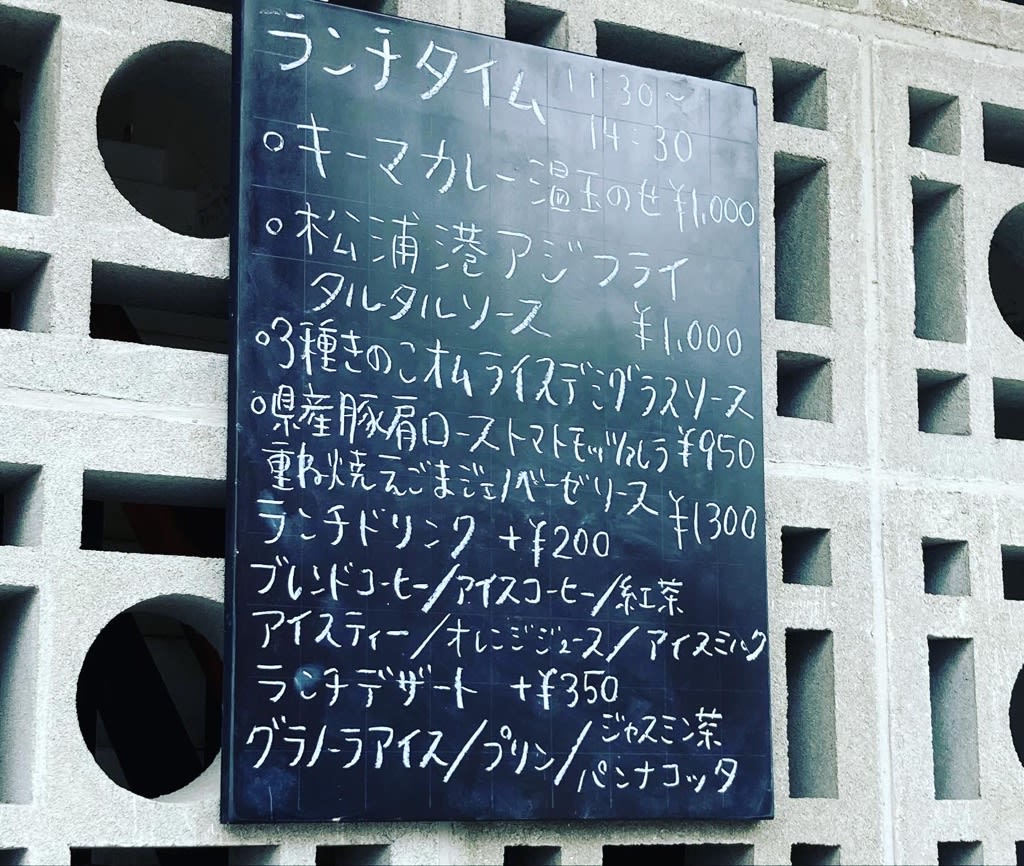 ランチタイム 11:30~
14:30
○キーマカレー温玉のせ ¥1,000
○松浦港アジフライ
タルタルソース ¥1,000
○3種きのこオムライスデミグラスソース
¥950
○県産豚肩ローストマトモッツァレラ
重ね焼えごまジェノベーゼソース ¥1300
ランチドリンク +¥200
ブレンドコーヒー/アイスコーヒー/紅茶
アイスティー/オレンジジュース/アイスミルク
ランチデザート +¥350
グラノーラアイス/プリン/ジャスミン茶
パンナコッタ